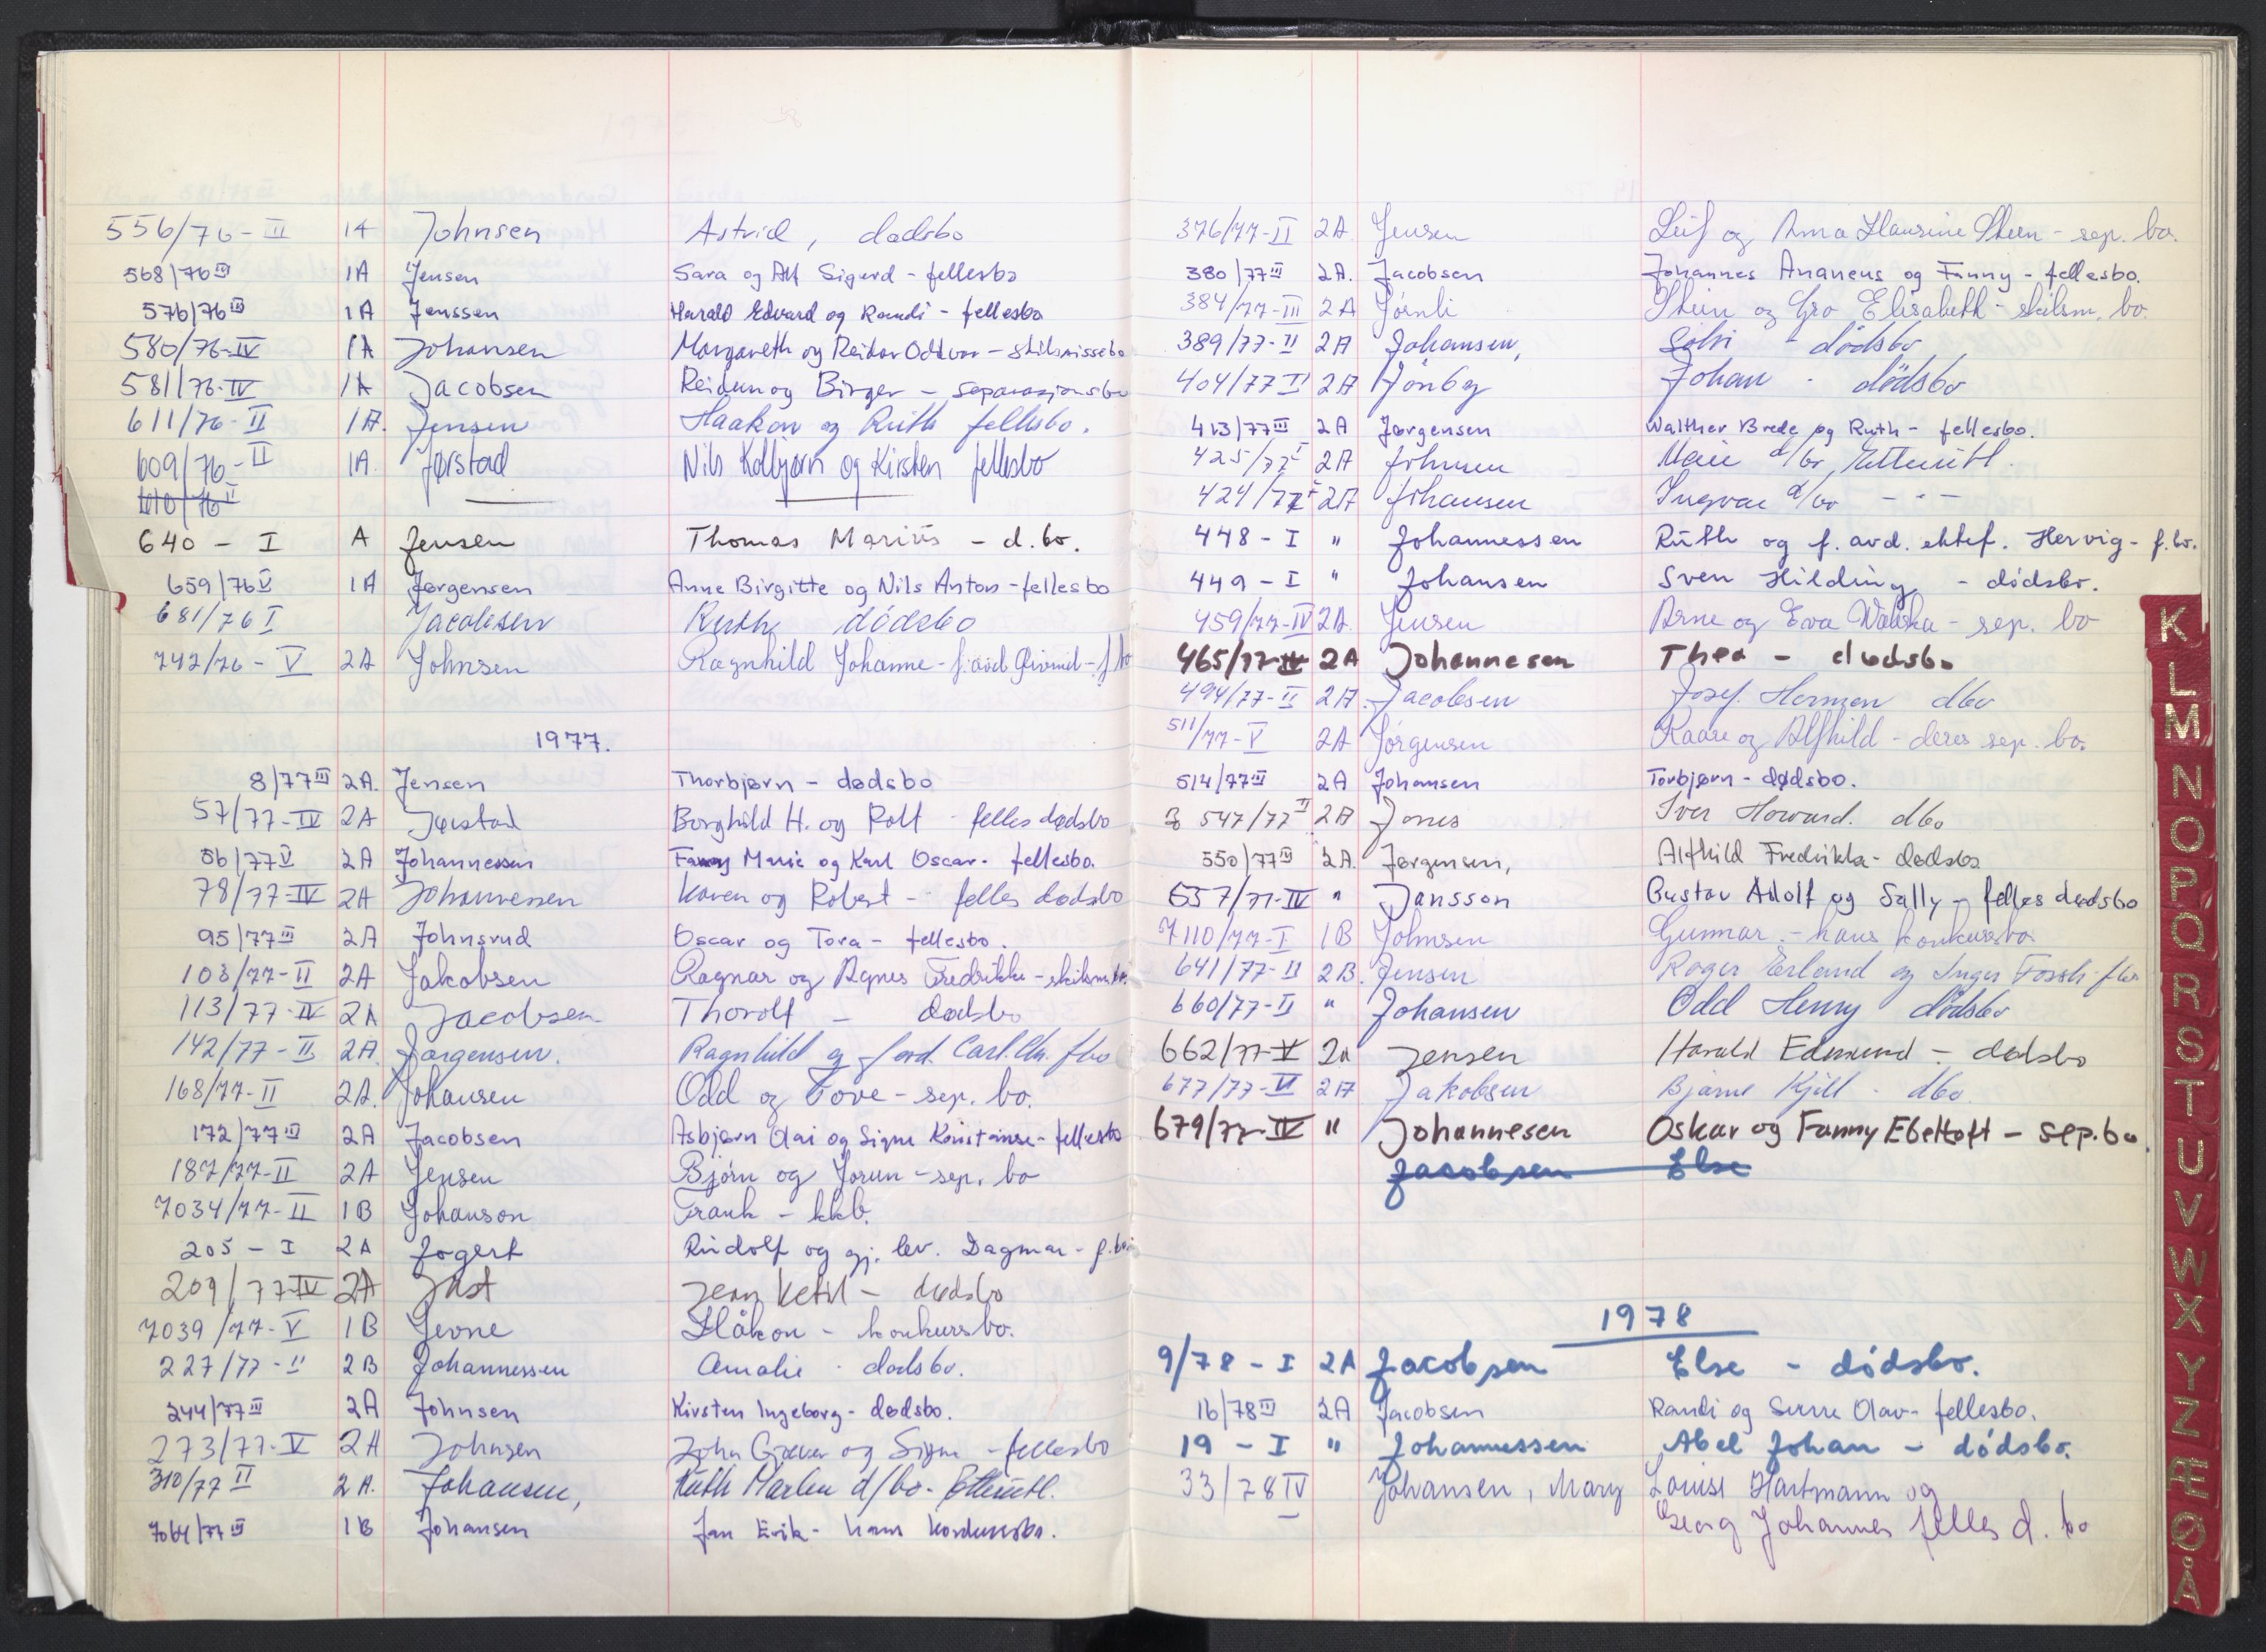 556/76-II 1A Johnsen Astrid, dødsbo
568/76 III 1A Jensen Sara og Alf Sigurd - fellesbo
576/76 III 1A Jenssen Harald Edvard og Randi - fellesbo
580/76-IV 1A Johansen Margareth og Reidar Oddvar - skilsmissebo
581/76-IV 1A Jacobsen Reidun og Birger - separasjonsbo
611/76-II 1A. Jensen Haakon og Ruth fellesbo.
609/76-II 1A. Jørstad Nils Kolbjørn og Kirsten fellesbo
610/76 II
640 - I A Jensen Thomas Marius - d.bo.
659/76 V 1A Jørgensen Anne Birgitte og Nils Anton - fellesbo
681/76 I Jacobsen Ruth dødsbo
742/76-V 2A Johnsen Ragnhild Johanne - f.avd. - f.bo
1977.
8/77 III 2A. Jensen Thorbjørn - dødsbo
57/77-IV 2A Jørstad Borghild H. og Rolf - felles dødsbo
56/77 V 2A Johannessen Fanny Marie og Karl Oscar - fellesbo.
78/77-IV 2A Johannessen Karen og Robert - felles dødsbo
95/77 III 2A Johnsrud Oscar og Tora - fellesbo.
103/77-II 2A Jakobsen Ragnar og Agnes Fredrikke - skilsm.bo.
113/77-IV 2A Jacobsen Thorolf - dødsbo
142/77-II 2A. Jørgensen. Ragnhild og ford. Carl.Chr. fbo
168/77-II 2A. Johansen Odd og Tove - sep. bo.
172/77 III 2A Jacobsen Asbjørn Olai og Signe Konstanse - fellesbo
187/77-II 2A Jensen Bjørn og Jorun - sep. bo
7034/77-II 1B Johanson Frank - kkb.
205 - I 2A Jogert Rudolf og gj. lev. Dagmar - f.bo
209/77-IV 2A Jast Jens Ketil - dødsbo
7039/77-V 1B Jevne Håkon - konkursbo.
227/77-II 2B Johannessen Amalie - dødsbo.
244/77 III 2A Johnsen Kirsten Ingeborg - dødsbo.
273/77-V 2A Johnsen John Græver og Signe - fellesbo
310/77 II 2A. Johansen, Ruth Marlen d/bo - Etteutl.
7064/77 III 1B Johansen Jan Erik - hans konkursbo.
376/77-II 2A Jensen Leif og Anna Hansine Steen - sep. bo.
380/77 III 2A. Jacobsen Johannes Ananeus og Fanny - fellesbo.
384/77-III 2A Jørnli Stein og Gro Elisabeth - skilsm. bo.
389/77-II 2A Johansen, Solvi dødsbo
404/77 II 2A Jönbg Johan - dødsbo
413/77 III 2A Jørgensen Walther Brede og Ruth - fellesbo.
425/77 I 2A Johnsen Marie d/bo, Etteutl.
424/77 I 2A Johansen Ingvar d/bo - " -
448 - I " Johannessen Ruth og f. avd. ektef. Hervig - f.bo.
449 - I " Johansen Sven Hilding - dødsbo.
459/77-IV 2A. Jensen Arne og Eva - sep. bo
465/77-IV 2A Johannesen Thea - dødsbo
494/77-II 2A. Jacobsen Josef. Herman dbo
511/77-V 2A Jørgensen Kaare og Alfhild - deres sep. bo.
514/77 III 2A Johansen Torbjørn - dødsbo.
547/77 II 2A Jones Iver Howard. dbo
550/77 III 2A. Jørgensen, Alfhild Fredrikke - dødsbo
557/77-IV " Jansson Gustav Adolf og Sally - felles dødsbo
7110/77-I 1B Johnsen Gunnar - hans konkursbo
641/77-II 2B. Jensen Roger Erland og Inger Fossli - fbo
660/77-II " Johansen Odd Henny dødsbo
662/77-V 2A Jensen Harald Edmund - dødsbo
677/77-VI 2A Jakobsen Bjarne Kjell - dbo
679/77-IV " Johannesen Oskar og Fanny Ebeltoft - sep.bo.
Jacobsen Else
1978
9/78 - I 2A Jacobsen Else - dødsbo.
16/78 III 2A Jacobsen Randi og Sverre Olav - fellesbo.
19 - I " Johannessen Abel Johan - dødsbo.
33/78 IV Johansen, Mary Louise Hartmann og
Georg Johannes felles d. bo
K
L
M
N
O
P
Q
R
S
T
U
V
W
X
Y
Z
Æ
Ø
Å